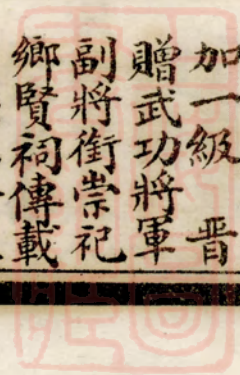 加一級 晋
贈武功將軍
副將銜崇祀
鄉賢祠傳載